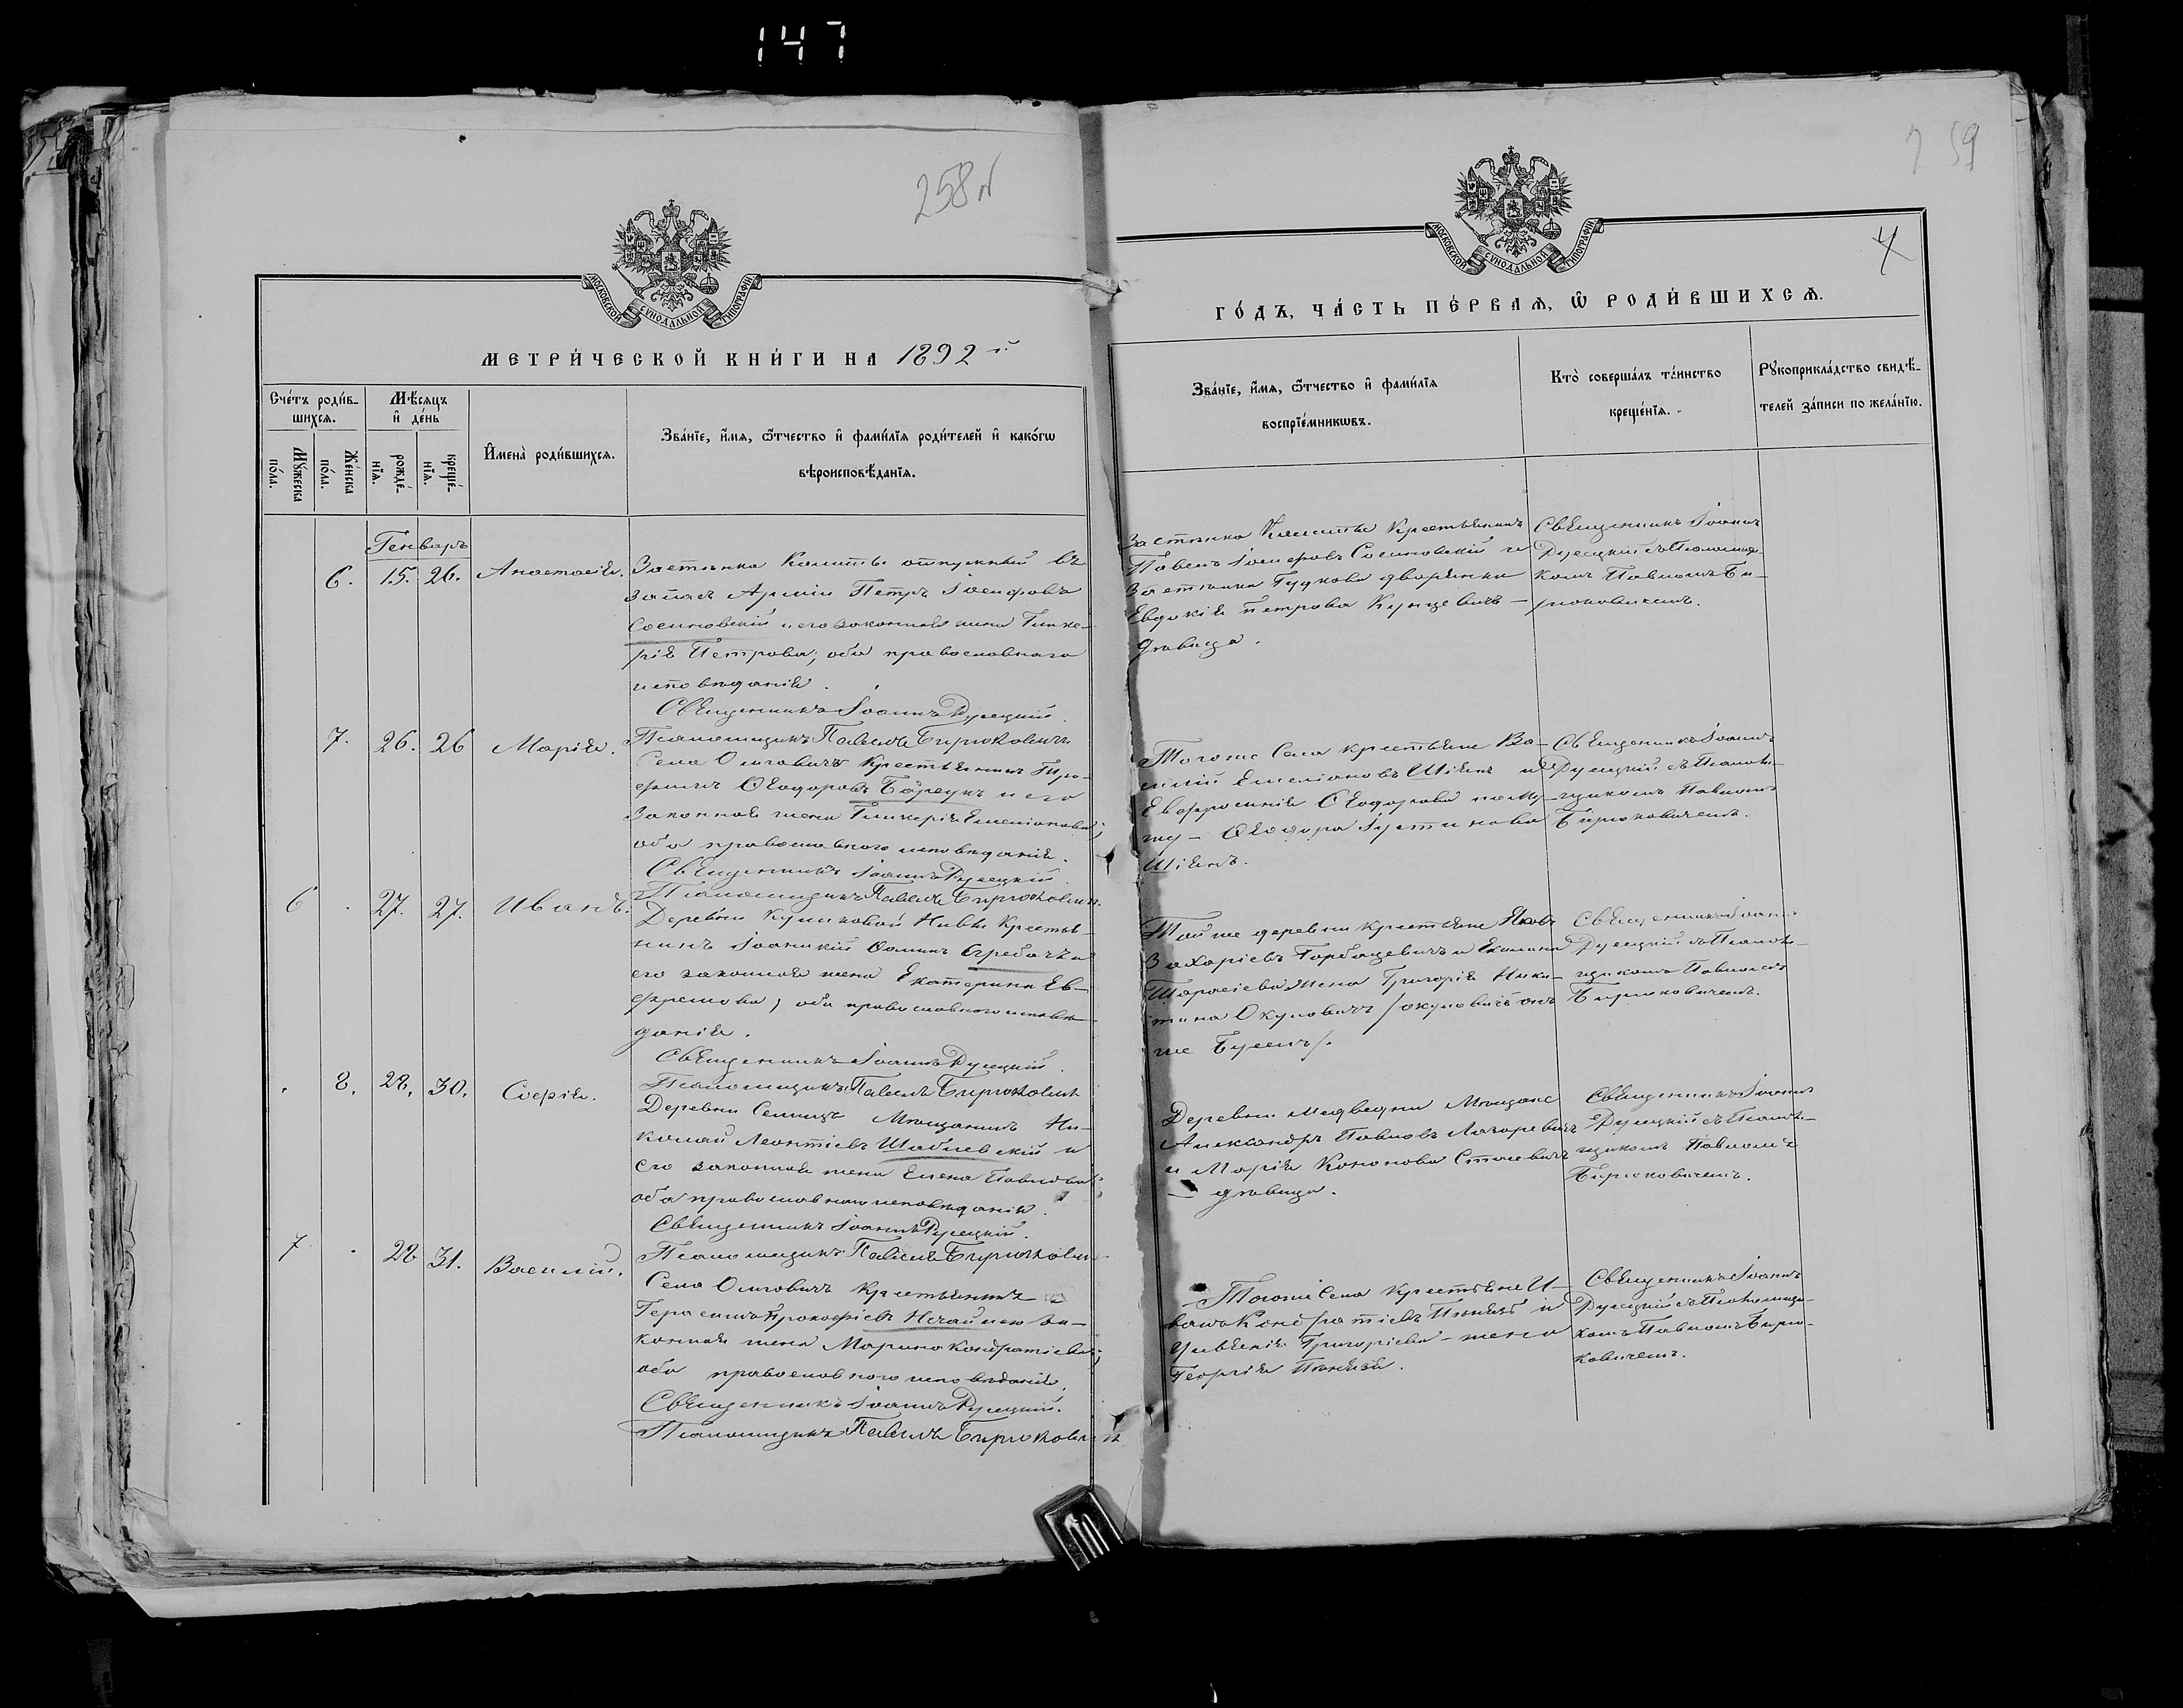 147
258 об
МОСКОВСКОЙ СѴНОДАЛЬНОЙ ТИПОГРАФІИ
МЕТРИ́ЧЕСКОЙ КНИ́ГИ НА 1892 й
Сче́тъ роди́в-
шихсѧ.
Мѣ́сѧцъ
и҆ де́нь
Мꙋ́жеска
по́ла.
Же́нска
по́ла.
рожде́-
нїѧ.
креще́-
нїѧ.
И҆мена̀ роди́вшихсѧ.
Зва́нїе, и҆́мѧ, ѻ҆́тчество и҆ фами́лїѧ роди́телей и҆ како́гѡ
вѣроисповѣ́данїѧ.
Генварь
6. 15. 26. Анастасія.
Застѣнка Камитъ отпускный въ
запасъ Арміи Петръ Іосифовъ
Сосиновскій и его законная жена Глике-
рія Петрова; оба православнаго
исповѣданія.
Священникъ Іоаннъ Рулецкій.
Псаломщикъ Павелъ Бирюковичъ
7. 26. 26 Марія.
Села Ольговичъ Крестьянинъ
Ѳеодоровъ и его
законная жена Гликерія Емеліанова;
оба православнаго исповѣданія.
Священникъ Іоаннъ Рулецкій
Псаломщикъ Павелъ Бирюкович.
6 . 27. 27. Иванъ.
Деревни Куликовой Нивы Крестья-
нинъ Іоаникій Ѳоминъ и
его законная жена Екатерина Ев-
фремова; оба православнаго исповѣ-
данія.
Священникъ Іоаннъ Рулецкій.
Псаломщикъ Павелъ Бирюкович
. 8. 28. 30. Софія.
Деревни Селищъ Мѣщанинъ Ни-
колай Леонтіевъ Шаблевскій и
его законная жена Елена Павлова
оба православнаго исповѣданія.
Священникъ Іоаннъ Рулецкій.
Псаломщикъ Павелъ Бирюкович
7 . 28 31. Василій.
Села Ольговичъ Крестьянинъ
Герасимъ Прокофіевъ за-
конная жена Марина Кондратіева;
оба православнаго исповѣданія.
Священникъ Іоаннъ Рулецкій.
Псаломщикъ Павелъ Бирюкович
259
4
МОСКОВСКОЙ СѴНОДАЛЬНОЙ ТИПОГРАФІИ
ГО́ДЪ, ЧА́СТЬ ПЕ́РВАѦ, Ѡ҆ РОДИ́ВШИХСѦ.
Зва́нїе, и҆́мѧ, ѻ҆́тчество и҆ фами́лїѧ
воспрїе́мникѡвъ.
Кто̀ соверша́лъ та́инство
креще́нїѧ.
Рꙋкоприкла́дство свидѣ́-
телей за́писи по жела́нїю.
Застѣнка Камитъ Крестьянинъ
Павелъ Іосифовъ Сосиновскій и
Застѣнка Гудкова дворянка
Евдокія Петрова Кунцевичъ —
дѣвица.
Священникъ Іоаннъ
Рулецкій съ Псаломщи-
комъ Павломъ Би-
рюковичемъ.
Тогоже Села крестьяне Ва-
силій Емеліановъ и
Евфросинія Ѳеодорова по му-
жу — Ѳеодора Іустинова
Священникъ Іоаннъ
Рулецкій съ Псалом-
щикомъ Павломъ
Бирюковичемъ.
Тойже деревни крестьяне Яковъ
Захаріевъ Горбацевичъ и
Тарасіева жена Григорія Ники-
тина Окуловичъ /окуловичъ онъ
же
Священникъ Іоаннъ
Рулецкій съ Псалом-
щикомъ Павломъ
Бирюковичемъ.
Деревни Медведни Мѣщане
Александръ Павловъ Лазаревичъ
и Марія Кононова Стасевичъ
— дѣвица.
Священникъ Іоаннъ
Рулецкій съ Псалом-
щикомъ Павломъ
Бирюковичемъ.
Тогоже Села Крестьяне И-
ванъ Кондратіевъ и
Григоріева — жена
Георгія
Священникъ Іоаннъ
Рулецкій съ Псаломщи-
комъ Павломъ Бирю-
ковичемъ.